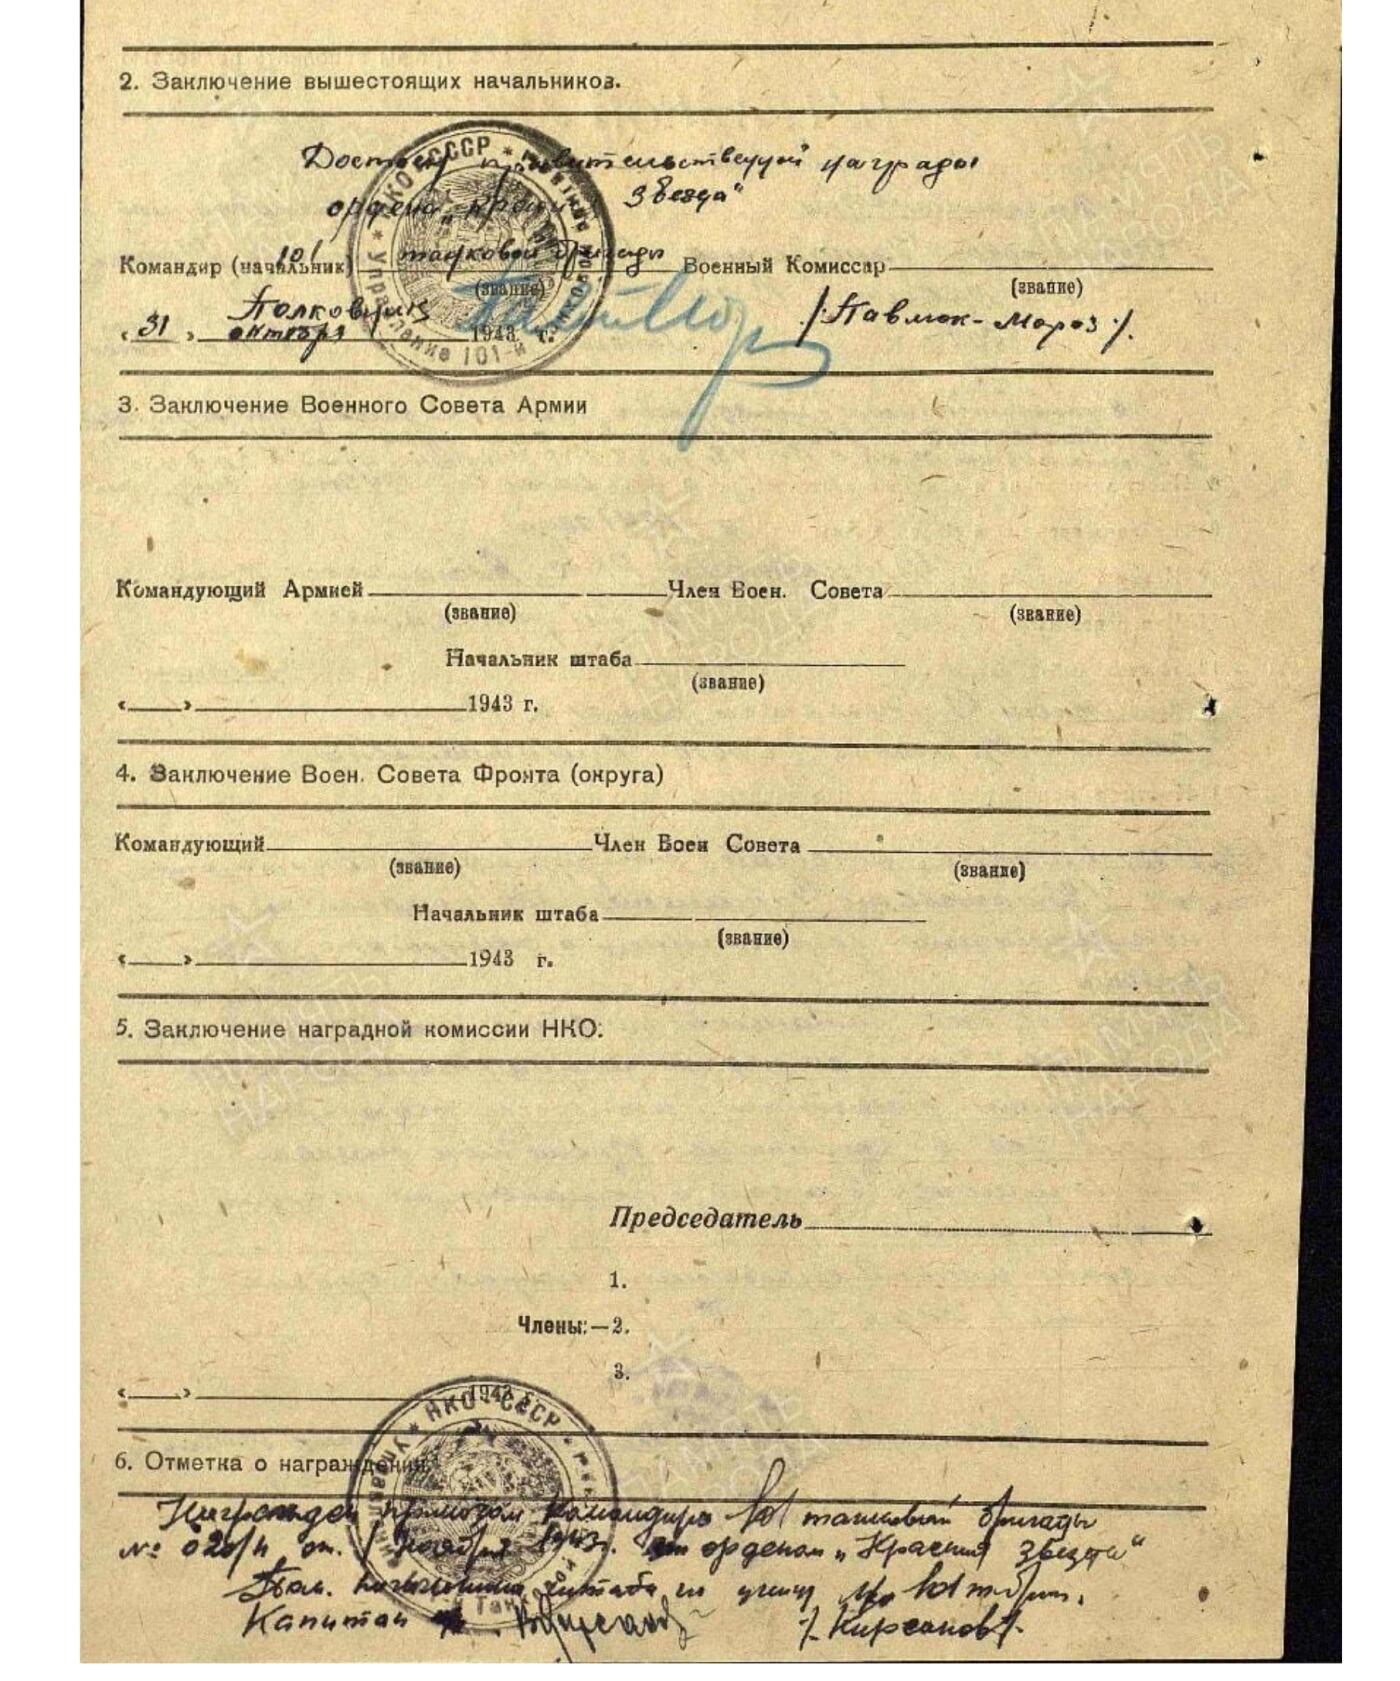 2. Заключение вышестоящих начальников.
Достоин правительственной награды
ордена „Красная Звезда"
Командир (начальник) 101 танковой бригады Военный Комиссар
(звание) (звание)
Полковник /Павлюк-Мороз/.
« 31 » октября 1943 г.
НКО СССР * Управление 101-й
3. Заключение Военного Совета Армии
Командующий Армией Член Воен. Совета
(звание) (звание)
Начальник штаба
(звание)
« » 1943 г.
4. Заключение Воен. Совета Фронта (округа)
Командующий Член Воен Совета
(звание) (звание)
Начальник штаба
(звание)
« » 1943 г.
5. Заключение наградной комиссии НКО:
Председатель
1.
Члены:—2.
3.
« » 1943 г.
НКО-СССР
6. Отметка о награждении
Награжден приказом Командира 101 танковой бригады
№ 020/н от 1 ноября 1943г. орденом „Красная звезда"
Пом. начальника штаба по учету 101 тбр.
Капитан /Кирсанов/.
ПАМЯТЬ НАРОДА